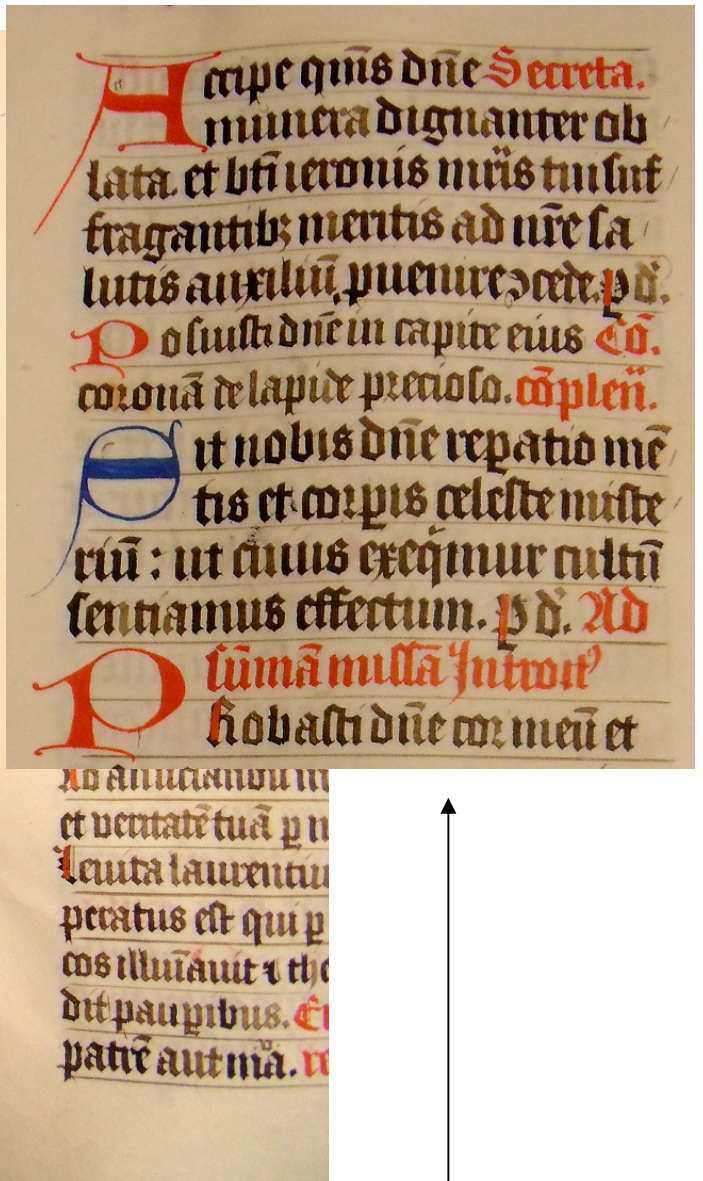 Accipe qm̄s dn̄e Secreta.
munera dignanter ob
lata. et bt̄i ieronis mr̄is tui suf
fragantibꝫ meritis ad nr̄e sa
lutis auxiliū ꝓuenire ↄcede. p d̄.
Posuisti dn̄e in capite eius Cō.
coronā de lapide precioso. cōplen̄.
Sit nobis dn̄e reꝑatio mē
tis et corꝑis celeste miste
riū : ut cuius exeq̄mur cultū
sentiamus effectum. p d̄. Ad
sūmā missā Introit
Probasti dn̄e cor meū et
et veritatē tuā ꝑ
Leuita laurentiu
peratus est qui ꝑ
cos illuīauit ⁊ tho
dit pauꝑibus.
patrē aut mīā. re